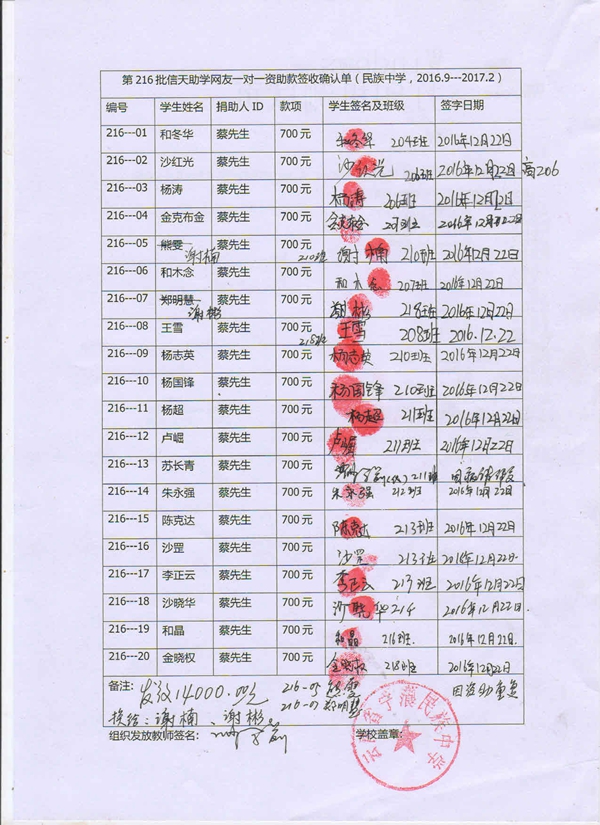 第216批信天助学网友一对一资助款签收确认单（民族中学，2016.9---2017.2）
编号 学生姓名 捐助人ID 款项 学生签名及班级 签字日期
216---01 和冬华 蔡先生 700元 和冬华 204班 2016年12月22日
216---02 沙红光 蔡先生 700元 沙红光 206班 2016年12月22日 高206
216---03 杨涛 蔡先生 700元 杨涛 206班 2016年12月12日
216---04 金克布金 蔡先生 700元 207班 2016年12月22日
216---05 熊雯 谢楠 蔡先生 700元 210班 谢楠 210班 2016年12月22日
216---06 和木念 蔡先生 700元 和木念 207班 2016年12月22日
216---07 郑明慧 谢彬 蔡先生 700元 218班 谢彬 218班 2016年12月22日
216---08 王雪 蔡先生 700元 王雪 208班 2016.12.22
216---09 杨志英 蔡先生 700元 杨志英 210班 2016年12月22日
216---10 杨国锋 蔡先生 700元 杨国锋 210班 2016年12月22日
216---11 杨超 蔡先生 700元 杨超 211班 2016年12月22日
216---12 卢崛 蔡先生 700元 211班 2016年12月22日
216---13 苏长青 蔡先生 700元 211班
216---14 朱永强 蔡先生 700元 朱永强 212班 2016年12月22日
216---15 陈克达 蔡先生 700元 陈克达 213班 2016年12月22日
216---16 沙罡 蔡先生 700元 沙罡 213班 2016年12月22日
216---17 李正云 蔡先生 700元 李正云 213班 2016年12月22日
216---18 沙晓华 蔡先生 700元 沙晓华 214 2016年12月22日
216---19 和晶 蔡先生 700元 和晶 216班 2016年12月21日
216---20 金晓权 蔡先生 700元 金晓权 218班 2016年12月22日
备注： 发放14000.00元 216-05 熊雯 因资助重复
216-07 郑明慧
换给：谢楠、谢彬。
组织发放教师签名： 学校盖章：
云南省宁蒗民族中学